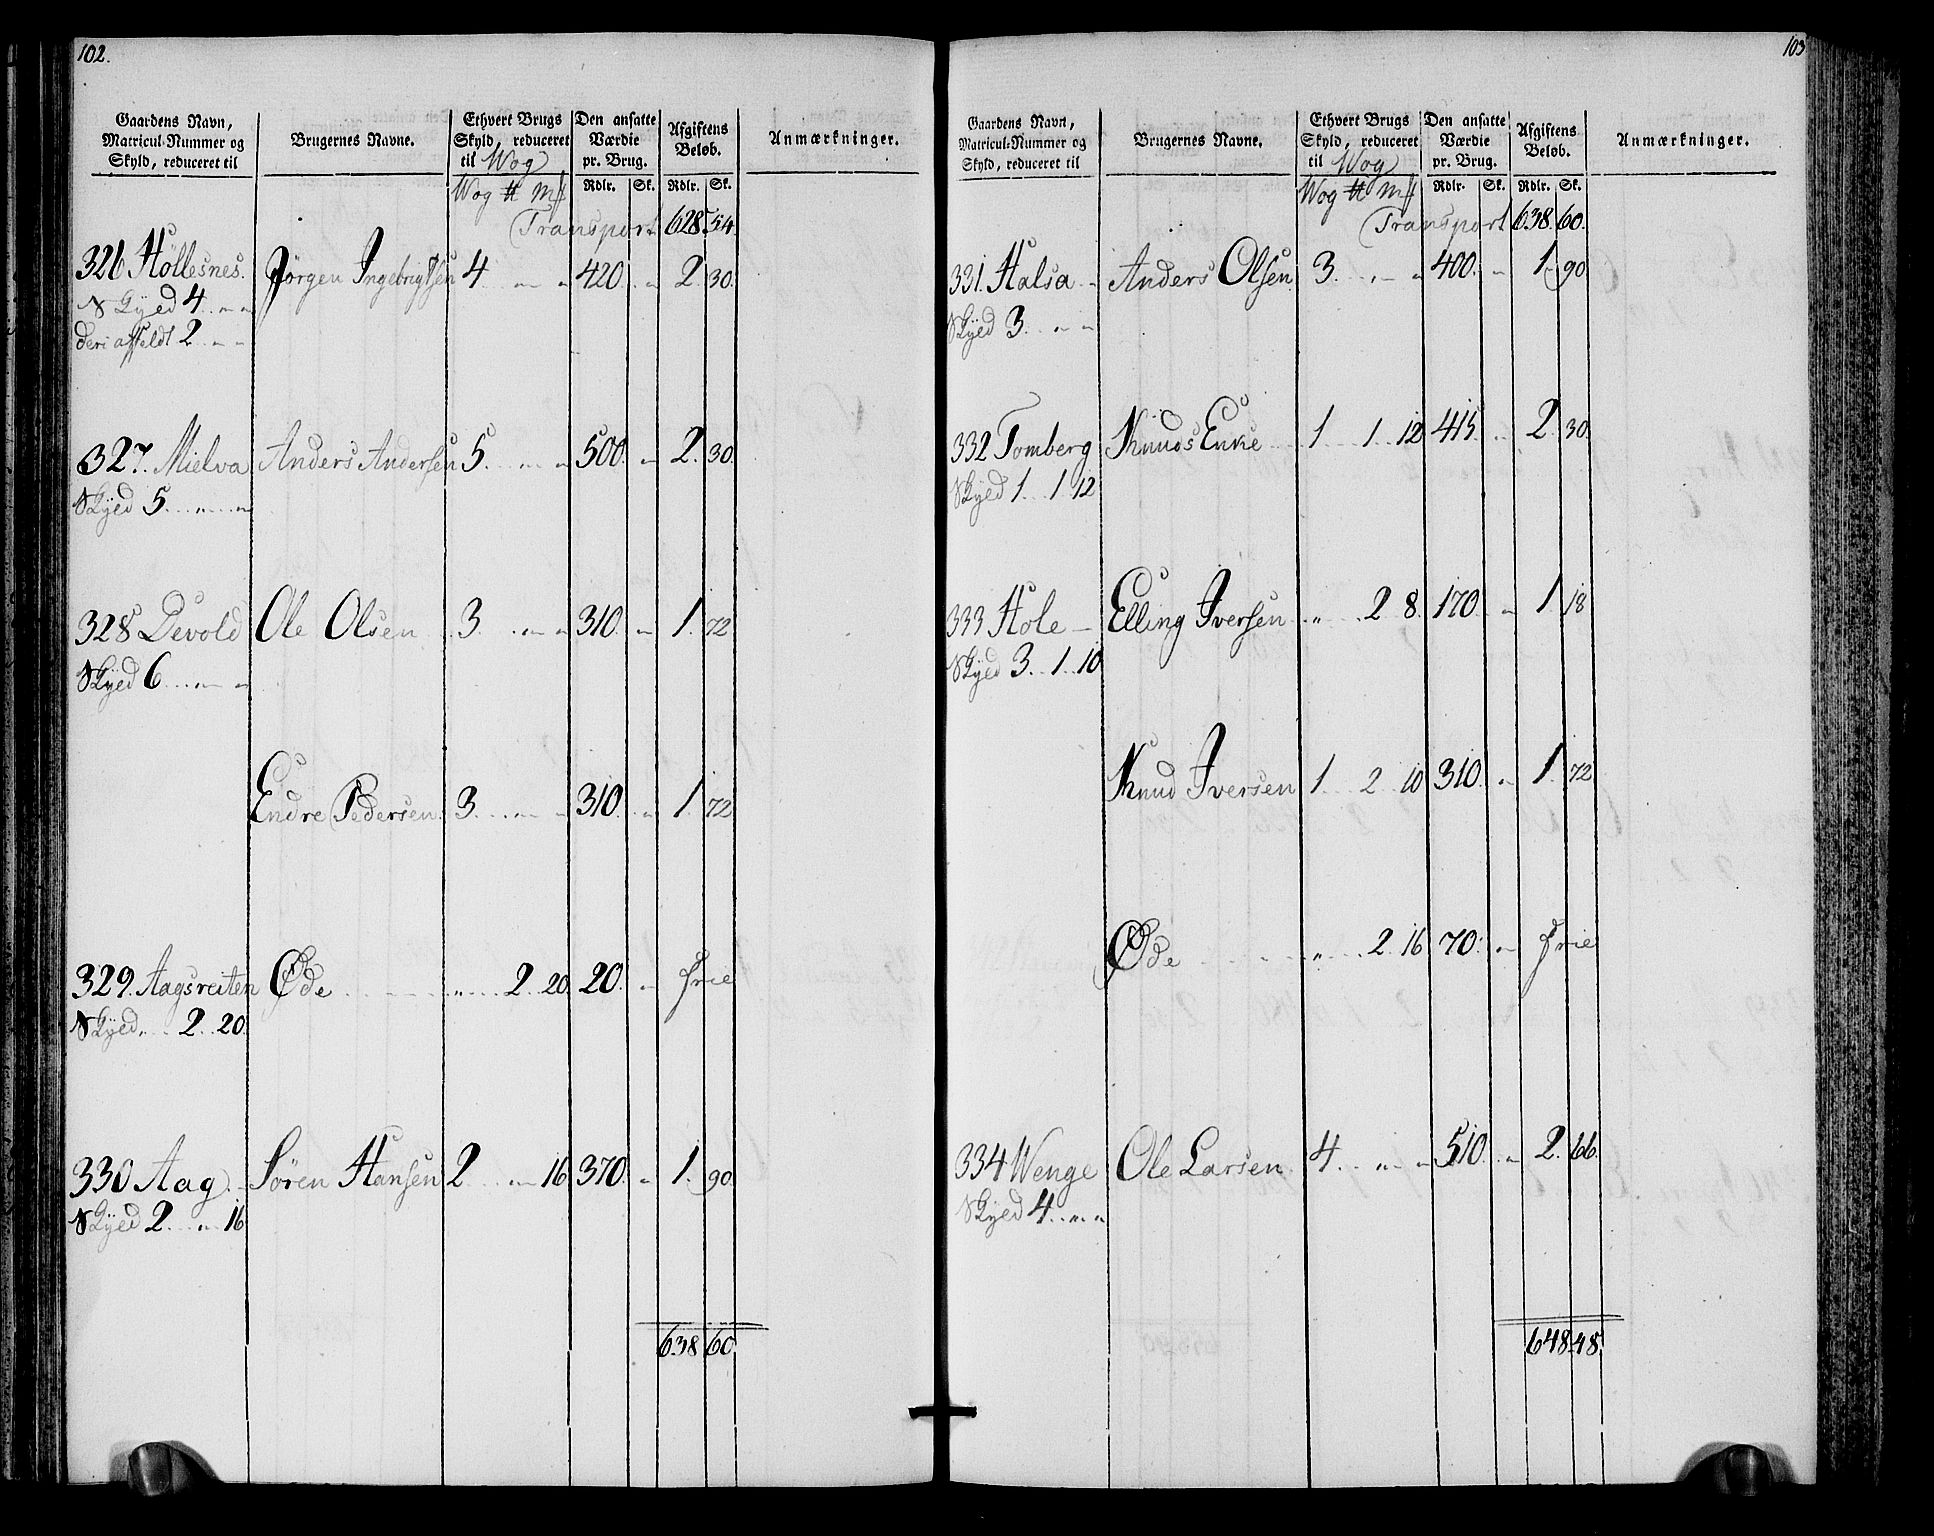 102.
Gaardens Navn, Matricul-Nummer og Skyld, reduceret til
Brugernes Navne.
Ethvert Brugs Skyld, reduceret til Wog
Den ansatte Værdie pr. Brug.
Afgiftens Beløb.
Anmærkninger.
Wog ℔ mk Rdlr. Sk. Rdlr. Sk.
Transport 628. 54.
326 Höllesnes. Jörgen Ingebrigtsen 4 „ „ 420 „ 2. 30.
Skyed 4 „ „
deri affeldt 2 „ „
327. Mielva Anders Andersen 5 „ „ 500. „ 2. 30.
Skyed 5 „ „
328 Devold Ole Olsen 3 „ „ 310. „ 1. 72
Skyed 6 „ „
Endre Pedersen 3 „ „ 310. „ 1. 72
329. Aagsreiten Øde „ 2 20. 20. „ frie
Skyed „ 2 20.
330 Aag Sören Hansen 2 „ 16 370 „ 1. 90.
Skyed 2 „ 16
638 60.
103
Gaardens Navn, Matricul-Nummer og Skyld, reduceret til
Brugernes Navne.
Ethvert Brugs Skyld, reduceret til Wog
Den ansatte Værdie pr. Brug.
Afgiftens Beløb.
Anmærkninger.
Wog ℔ mk Rdlr. Sk. Rdlr. Sk.
Transport 638. 60.
331. Halsa Anders Olsen 3 „ „ 400. „ 1 90
Skyed 3 „ „
332 Tomberg Knuds Enke 1 1 12 415 „ 2 30.
Skyed 1 1 12
333 Hole Elling Iversen „ 2 8. 170 „ 1 18
Skyed 3 1 10
Knud Iversen 1 2 10 310 „ 1 72
Øde „ 2 16 70. „ frie
334 Wenge Ole Larsen 4 „ „ 510. „ 2. 66.
Skyed 4 „ „
648. 48.